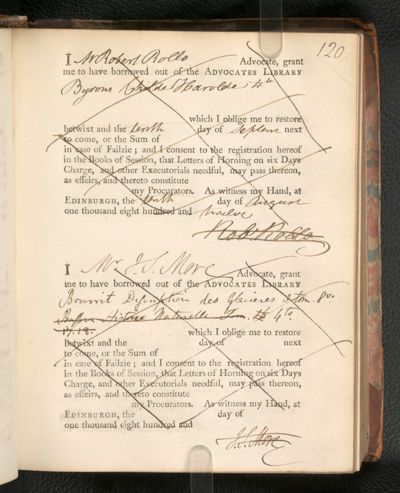 120.
I Mr Robert Rollo Advocate, grant
me to have borrowed out of the ADVOCATES LIBRARY
Byrons Childe Harolde 4to
which I oblige me to restore
betwixt and the tenth day of Septem next
to come, or the Sum of
in case of Failzie; and I consent to the registration hereof
in the Books of Session, that Letters of Horning on six Days
Charge, and other Executorials needful, may pass thereon,
as effeirs, and thereto constitute
my Procurators. As witness my Hand, at
EDINBURGH, the tenth day of August
one thousand eight hundred and twelve
Rob. Rollo
I Mr. J. S. More Advocate, grant
me to have borrowed out of the ADVOCATES LIBRARY
Bourrit Description des Glacieres 8vo.
Buffon Histoire Naturelle 4to.
17. 18. which I oblige me to restore
betwixt and the day of next
to come, or the Sum of
in case of Failzie; and I consent to the registration hereof
in the Books of Session, that Letters of Horning on six Days
Charge, and other Executorials needful, may pass thereon,
as effeirs, and thereto constitute
my Procurators. As witness my Hand, at
EDINBURGH, the day of
one thousand eight hundred and
J. S. More